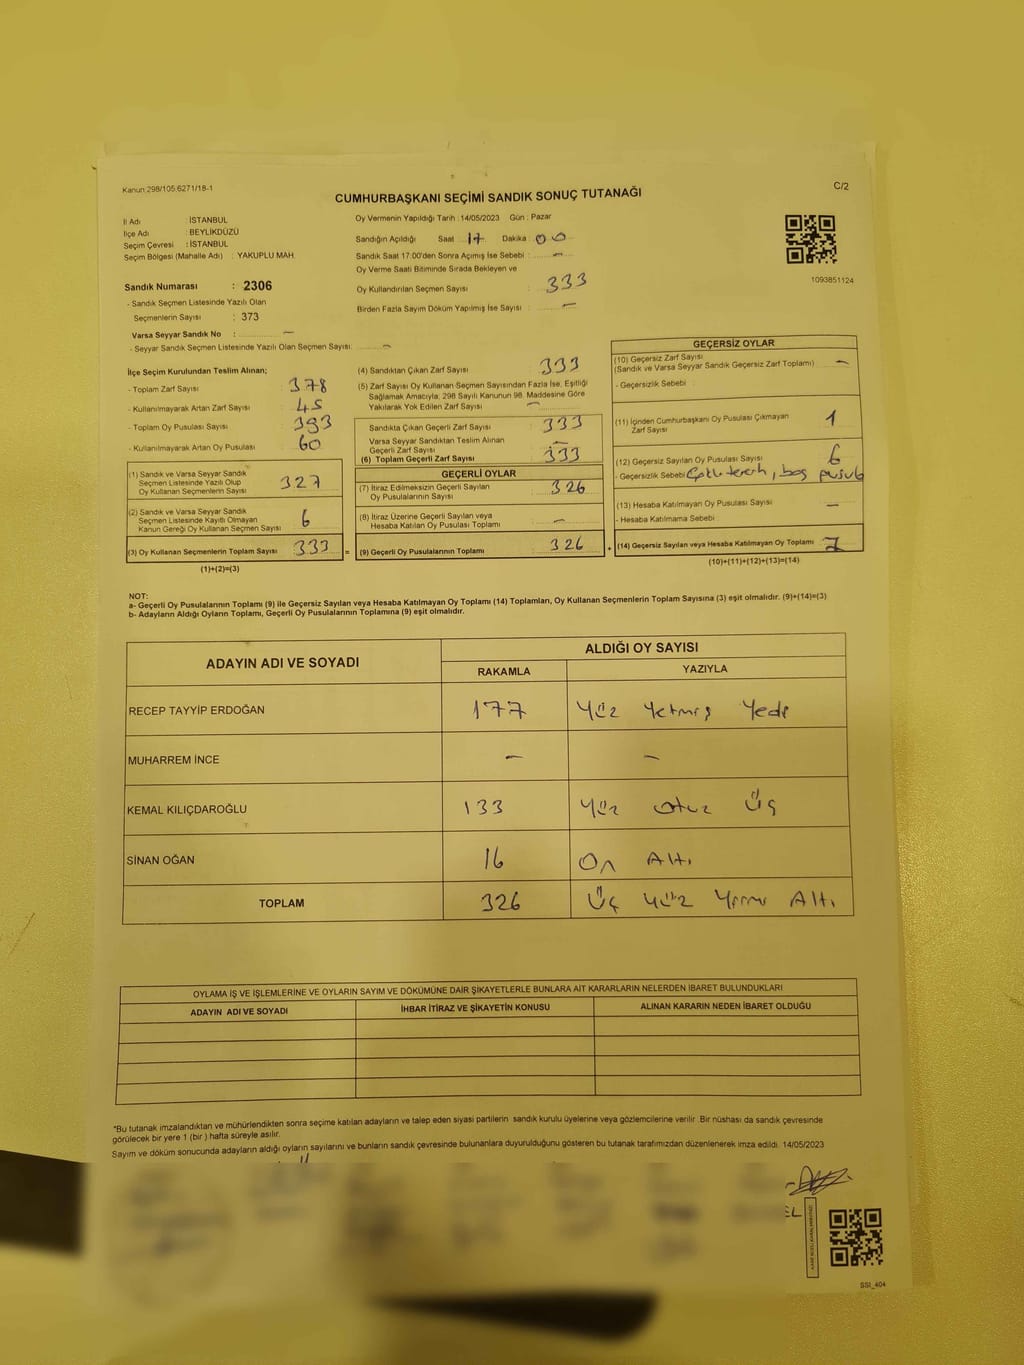 Kanun:298/105.6271/18-1
C/2
CUMHURBAŞKANI SEÇİMİ SANDIK SONUÇ TUTANAĞI
İl Adı : İSTANBUL
İlçe Adı : BEYLİKDÜZÜ
Seçim Çevresi : İSTANBUL
Seçim Bölgesi (Mahalle Adı) : YAKUPLU MAH.
Sandık Numarası : 2306
- Sandık Seçmen Listesinde Yazılı Olan
Seçmenlerin Sayısı : 373
Varsa Seyyar Sandık No : —
- Seyyar Sandık Seçmen Listesinde Yazılı Olan Seçmen Sayısı: —
Oy Vermenin Yapıldığı Tarih : 14/05/2023 Gün : Pazar
Sandığın Açıldığı Saat 17 Dakika : 00
Sandık Saat 17:00'den Sonra Açımış İse Sebebi : —
Oy Verme Saati Bitiminde Sırada Bekleyen ve
Oy Kullandırılan Seçmen Sayısı : 333
Birden Fazla Sayım Döküm Yapılmış İse Sayısı : —
1093851124
İlçe Seçim Kurulundan Teslim Alınan;
- Toplam Zarf Sayısı : 378
- Kullanılmayarak Artan Zarf Sayısı : 45
- Toplam Oy Pusulası Sayısı : 393
- Kullanılmayarak Artan Oy Pusulası : 60
(1) Sandık ve Varsa Seyyar Sandık
Seçmen Listesinde Yazılı Olup
Oy Kullanan Seçmenlerin Sayısı 327
(2) Sandık ve Varsa Seyyar Sandık
Seçmen Listesinde Kayıtlı Olmayan
Kanun Gereği Oy Kullanan Seçmen Sayısı 6
(3) Oy Kullanan Seçmenlerin Toplam Sayısı 333 =
(1)+(2)=(3)
(4) Sandıktan Çıkan Zarf Sayısı 333
(5) Zarf Sayısı Oy Kullanan Seçmen Sayısından Fazla İse, Eşitliği
Sağlamak Amacıyla, 298 Sayılı Kanunun 98. Maddesine Göre
Yakılarak Yok Edilen Zarf Sayısı —
Sandıkta Çıkan Geçerli Zarf Sayısı : 333
Varsa Seyyar Sandıktan Teslim Alınan
Geçerli Zarf Sayısı : —
(6) Toplam Geçerli Zarf Sayısı : 333
GEÇERLİ OYLAR
(7) İtiraz Edilmeksizin Geçerli Sayılan
Oy Pusulalarının Sayısı 326
(8) İtiraz Üzerine Geçerli Sayılan veya
Hesaba Katılan Oy Pusulası Toplamı —
(9) Geçerli Oy Pusulalarının Toplamı 326 +
GEÇERSİZ OYLAR
(10) Geçersiz Zarf Sayısı
(Sandık ve Varsa Seyyar Sandık Geçersiz Zarf Toplamı) —
- Geçersizlik Sebebi :
(11) İçinden Cumhurbaşkanı Oy Pusulası Çıkmayan
Zarf Sayısı 1
(12) Geçersiz Sayılan Oy Pusulası Sayısı 6
- Geçersizlik Sebebi , boş pusula
(13) Hesaba Katılmayan Oy Pusulası Sayısı —
- Hesaba Katılmama Sebebi :
(14) Geçersiz Sayılan veya Hesaba Katılmayan Oy Toplamı 7
(10)+(11)+(12)+(13)=(14)
NOT:
a- Geçerli Oy Pusulalarının Toplamı (9) ile Geçersiz Sayılan veya Hesaba Katılmayan Oy Toplamı (14) Toplamları, Oy Kullanan Seçmenlerin Toplam Sayısına (3) eşit olmalıdır. (9)+(14)=(3)
b- Adayların Aldığı Oyların Toplamı, Geçerli Oy Pusulalarının Toplamına (9) eşit olmalıdır.
ADAYIN ADI VE SOYADI
ALDIĞI OY SAYISI
RAKAMLA YAZIYLA
RECEP TAYYİP ERDOĞAN 177 Yüz Yetmiş Yedi
MUHARREM İNCE — —
KEMAL KILIÇDAROĞLU 133 Yüz otuz Üç
SİNAN OĞAN 16 On Altı
TOPLAM 326 Üç yüz Yirmi Altı
OYLAMA İŞ VE İŞLEMLERİNE VE OYLARIN SAYIM VE DÖKÜMÜNE DAİR ŞİKAYETLERLE BUNLARA AİT KARARLARIN NELERDEN İBARET BULUNDUKLARI
ADAYIN ADI VE SOYADI İHBAR İTİRAZ VE ŞİKAYETİN KONUSU ALINAN KARARIN NEDEN İBARET OLDUĞU
*Bu tutanak imzalandıktan ve mühürlendikten sonra seçime katılan adayların ve talep eden siyasi partilerin sandık kurulu üyelerine veya gözlemcilerine verilir. Bir nüshası da sandık çevresinde
görülecek bir yere 1 (bir ) hafta süreyle asılır.
Sayım ve döküm sonucunda adayların aldığı oyların sayılarını ve bunların sandık çevresinde bulunanlara duyurulduğunu gösteren bu tutanak tarafımızdan düzenlenerek imza edildi. 14/05/2023
SSI_404